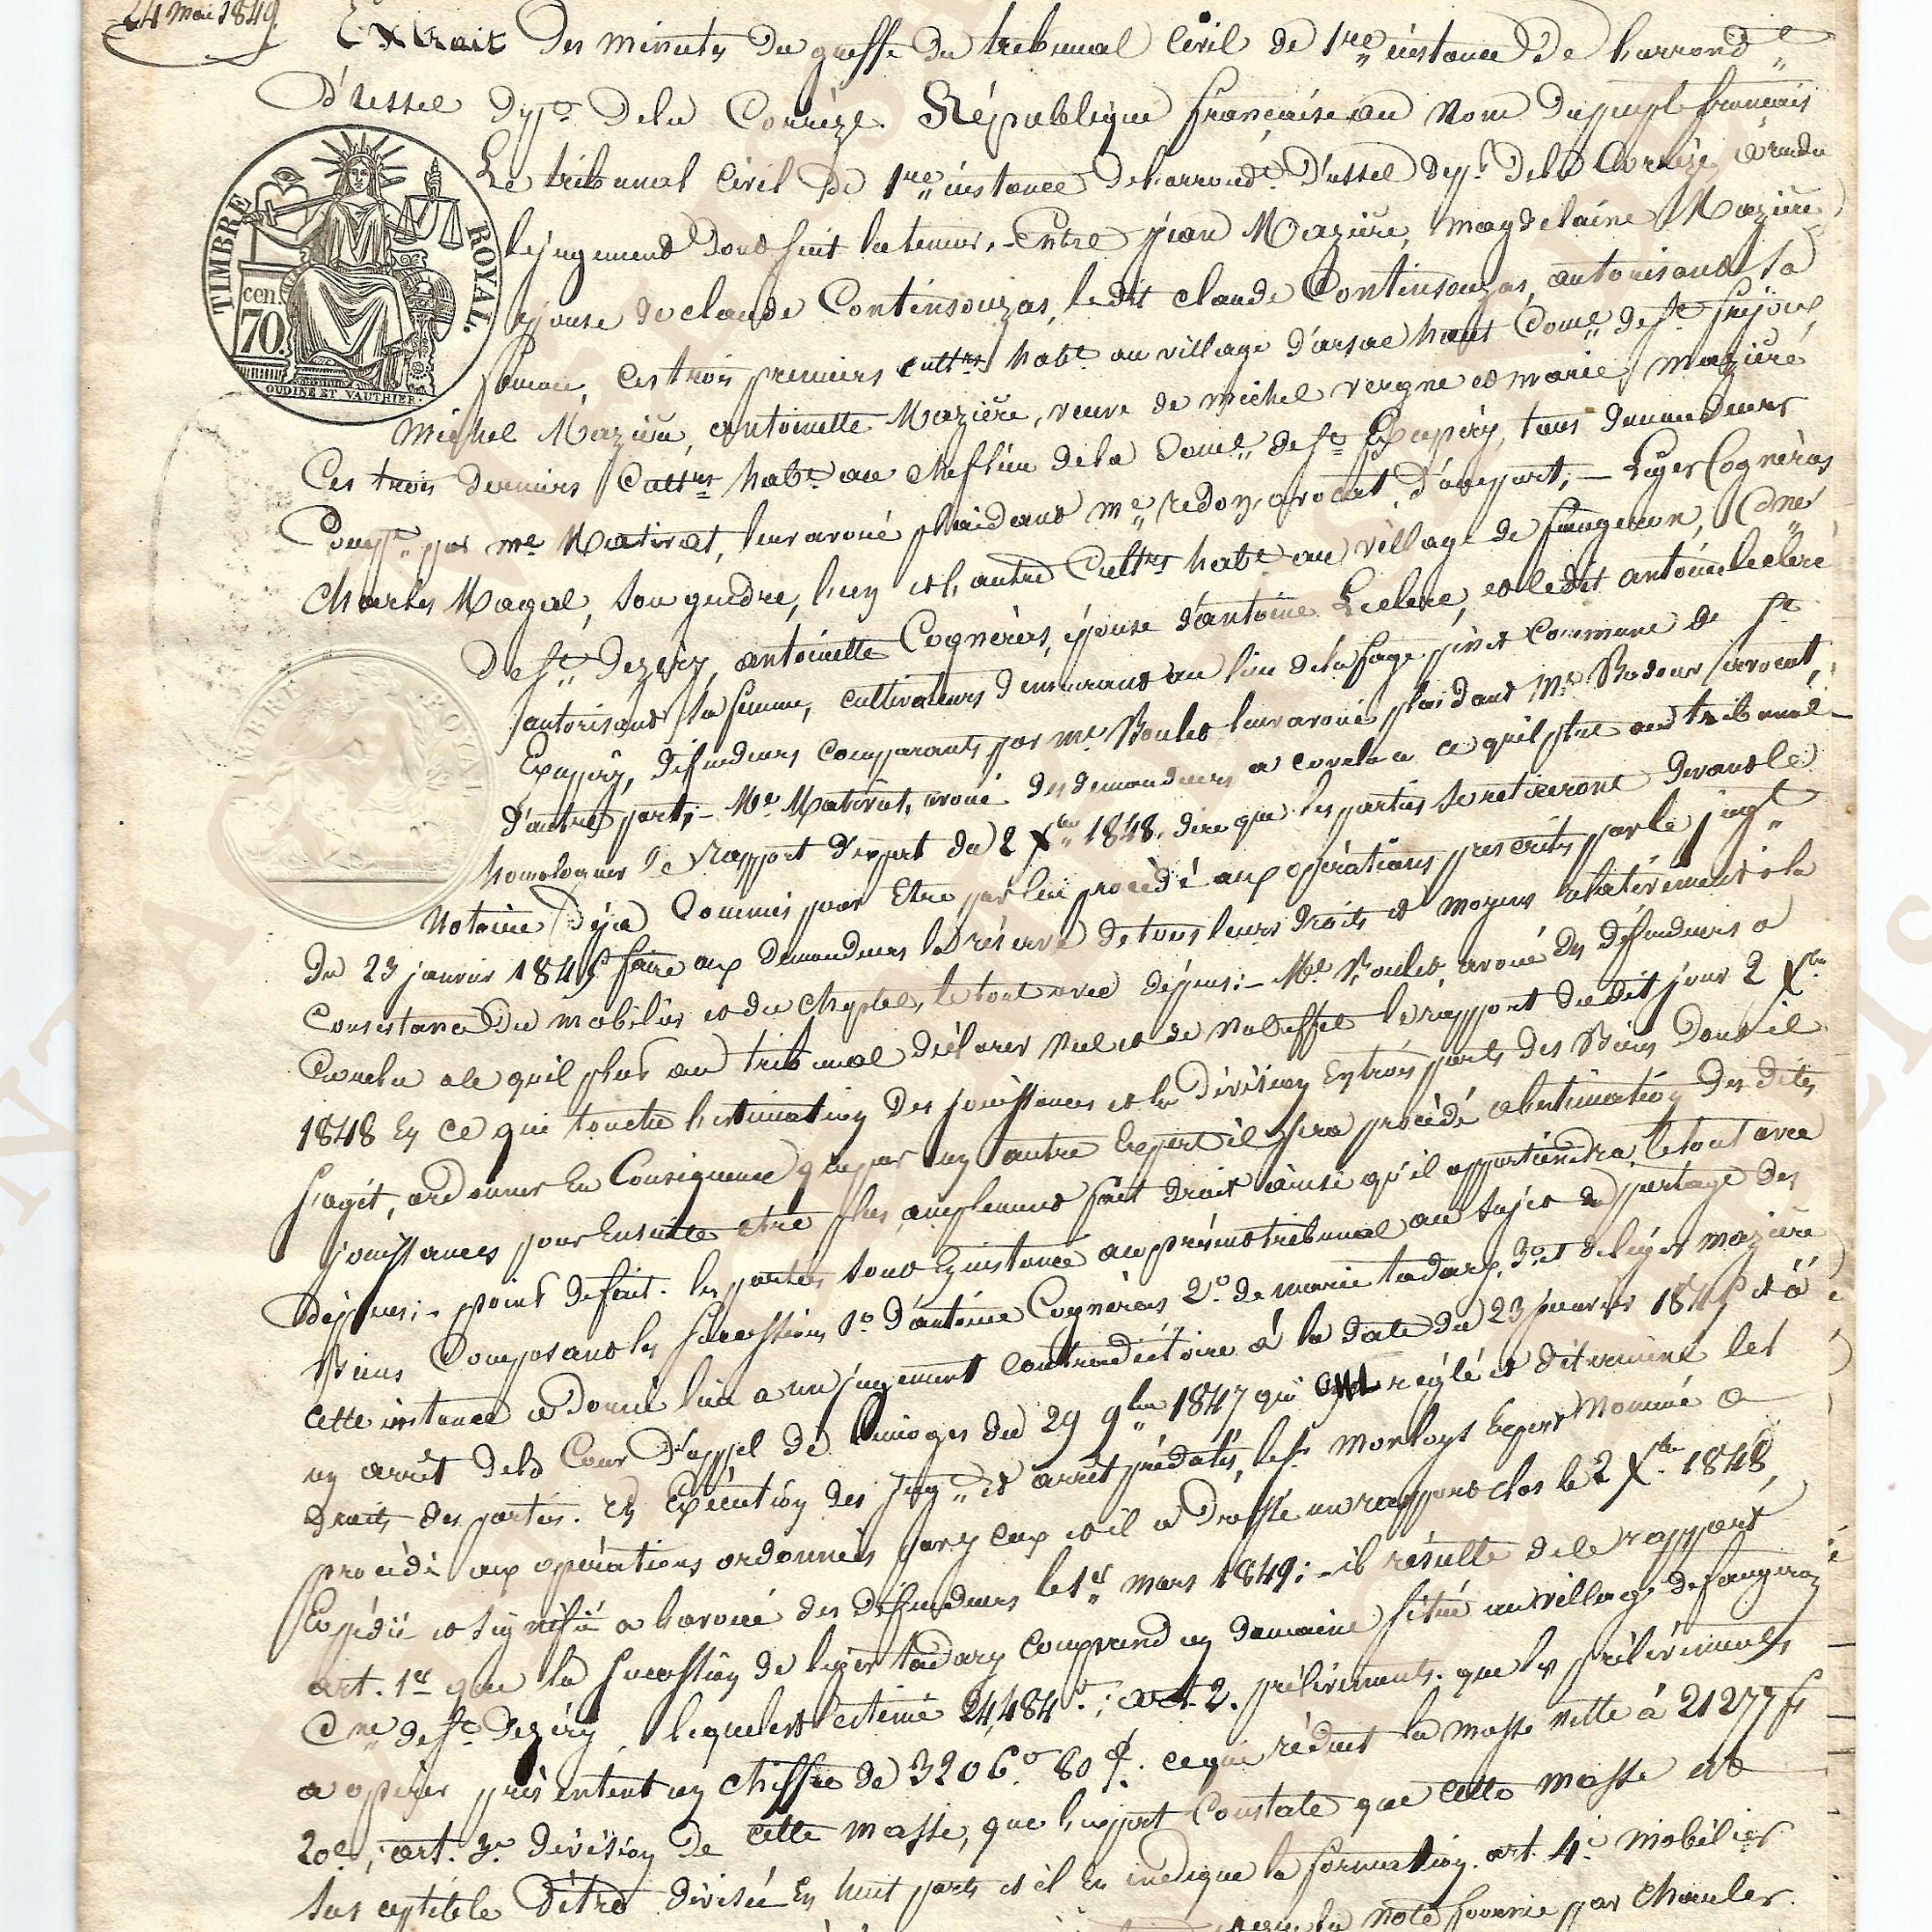 24 mai 1849.
Extrait des minutes du greffe du tribunal civil de 1re instance de l'arrondt
d'ussel dept. dela Corrèze. République française au Nom du peuple français
Le tribunal civil de 1re instance del'arrondt. d'ussel dept. dela Corrèze, a rendu
le jugement dont suit la teneur, - Entre jean Mazière, magdelaine Mazière
épouse de claude Continsouzas, ledit claude Continsouzas, autorisant sa
femme, ces trois premiers cultrs habt. au village d'arsac haut Comne. de st. fréjoux
Michel Mazière, antoinette Mazière, veuve de michel vergne et marie mazière
Ces trois derniers Cultrs habt. au cheflieu dela Comne. de st. Exupéry, tous demandeurs
Compt. par me Mativat, leur avoué plaidant me redon, avocat, d'une part; - Léger Cognéras
Charles Magal, son gendre, l'un et l'autre Cultrs habt. au village de faugeron, Cne
De st. Dezéry, antoinette Cognéras, épouse d'antoine Leclerc, et ledit antoine leclerc
autorisant sa femme, cultivateurs demeurant au lieu dela fage commune de st.
Exupéry, défendeurs comparants par me. Boulet leur avoué plaidant me. avocat,
d'autre part; - Me. Mativat, avoué des demandeurs a conclu a ce qu'il plut au tribunal
homologuer le rapport d'expert du 2 Xbre 1848. dire que les parties se retireront devant le
Notaire Déja Commis pour Etre par lui procédé aux opérations prescrites par le jugt.
du 23 janvier 1845 faire aux demandeurs la réserve de tous leurs droits et moyens relativement à la
Consistance du mobilier et du cheptel, le tout avec dépens: - Me. Boulet avoué des défendeurs a
Conclu a ce qu'il plut au tribunal déclarer Nul et de Nul effet le rapport du dit jour 2 Xbre
1848 En ce qui touche l'estimation des jouissances et la division En trois parts des Biens Dont il
s'agit, ordonner En Conséquence que par un autre Expert il sera procédé a l'estimation Des dites
jouissances pour Ensuite etre plus amplement fait droit ainsi qu'il appartiendra, le tout avec
dépens; - point de fait. les parties sont En instance au présent tribunal au sujet du partage des
Biens Composant les successions 1o d'antoine Cognéras 2o. de marie tadary, 3o. et de léger mazière
Cette instance a donné lieu a un jugement contradictoire à la date du 23 janvier 1845 et à
un arrêt dela Cour d'appel de Limoges du 29 9bre 1847 qui ont réglé et déterminé les
droits des parties. En Exécution des jugt. et arrêt prédatés, le sr. Expert Nommé a
procédé aux opérations ordonnées par y ceux et il a Dressé un rapport clos le 2 Xbre 1848,
Expédié et signifié a l'avoué des défendeurs le 1er mars 1849: - il résulte de ce rapport
art. 1er que la succession de léger tadary comprend un domaine situé au village de faugeron
Cne de st. Dezéry, lequel est estimé 24,484f.; art. 2. prélévements. que les prélévements
a opérer présentent un chiffre de 3206f. 80c. ce qui réduit la masse nette à 21277 fs
20c; art. 3e division de cette masse, que l'expert Constate que cette masse est
Susceptible d'être divisée En huit parts et il en indique la formation. art. 4e. mobilier
la note fournie par Charles
TIMBRE ROYAL.
cen.
70.
OUDINÉ ET VAUTHIER.
TIMBRE ROYAL